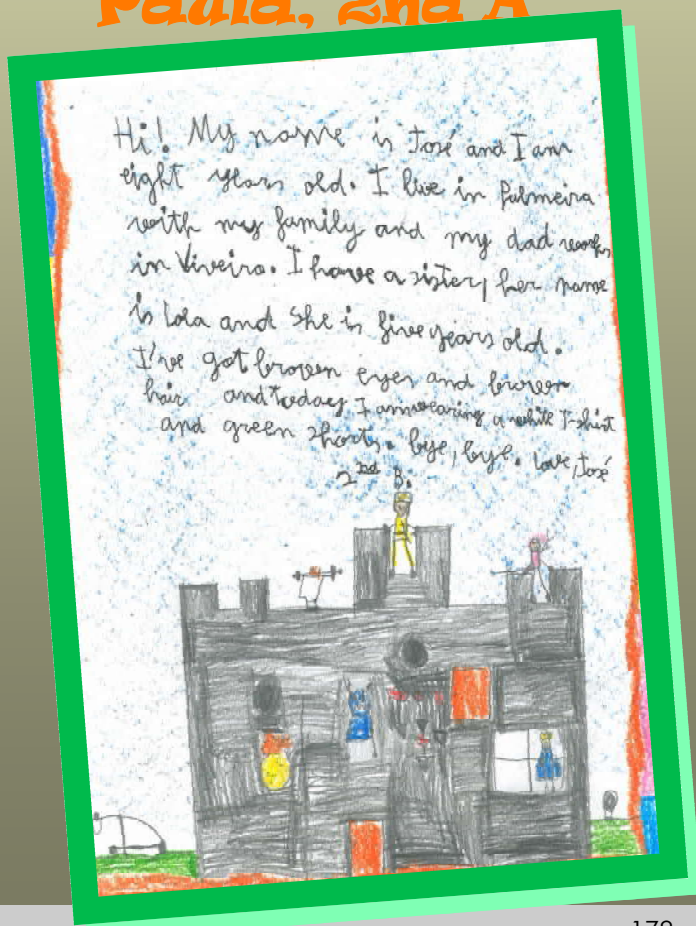 Paula, 2nd A
Hi! My name is José and I am
eight years old. I live in Palmeira
with my family and my dad works
in Viveiro. I have a sister, her name
is Lola and she is five years old.
I've got brown eyes and brown
hair and today I am wearing a white T-shirt
and green shorts. bye, bye. Love, José
2nd B.
179